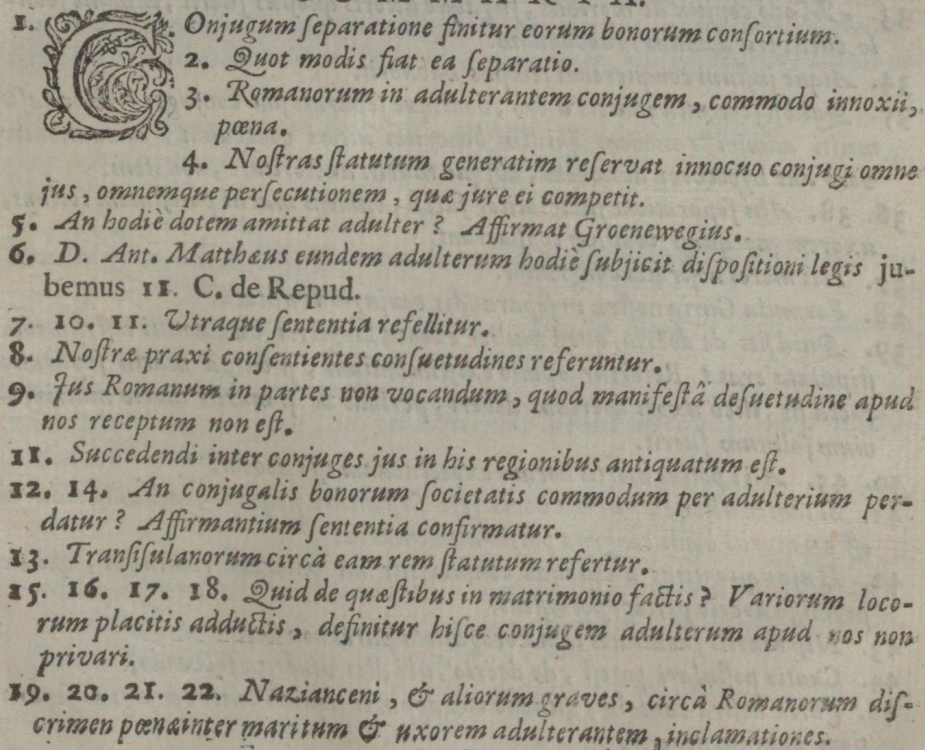 1. COnjugum ſeparatione finitur eorum bonorum conſortium.
2. Quot modis fiat ea ſeparatio.
3. Romanorum in adulterantem conjugem, commodo innoxii,
pœna.
4. Noſtras ſtatutum generatim reſervat innocuo conjugi omne
jus, omnemque perſecutionem, quæ jure ei competit.
5. An hodiè dotem amittat adulter? Affirmat Groenewegius.
6. D. Ant. Matthæus eundem adulterum hodiè ſubjicit diſpoſitioni legis ju-
bemus 11. C. de Repud.
7. 10. 11. Utraque ſententia refellitur.
8. Noſtræ praxi conſentientes conſuetudines referuntur.
9. Jus Romanum in partes non vocandum, quod manifeſtâ deſuetudine apud
nos receptum non eſt.
11. Succedendi inter conjuges jus in his regionibus antiquatum eſt.
12. 14. An conjugalis bonorum ſocietatis commodum per adulterium per-
datur? Affirmantium ſententia confirmatur.
13. Tranſiſulanorum circà eam rem ſtatutum refertur.
15. 16. 17. 18. Quid de quæſtibus in matrimonio factis? Variorum loco-
rum placitis adductis, definitur hiſce conjugem adulterum apud nos non
privari.
19. 20. 21. 22. Nazianceni, & aliorum graves, circà Romanorum diſ-
crimen pœnæ inter maritum & uxorem adulterantem, inclamationes.